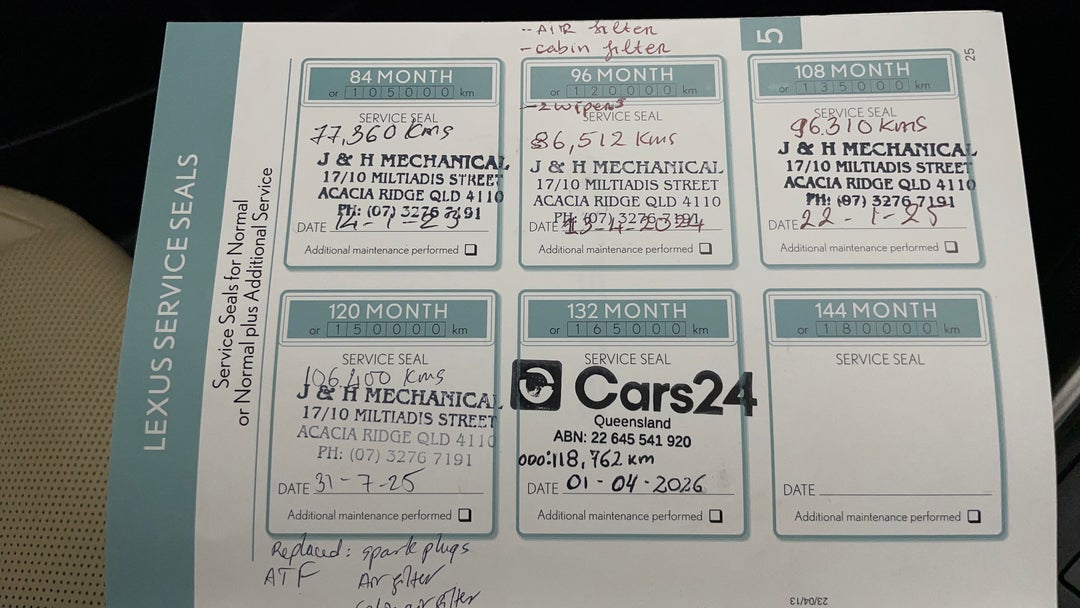 LEXUS SERVICE SEALS
Service Seals for Normal
or Normal plus Additional Service
5
25
- AIR filter
- cabin filter
84 MONTH
or 105000 km
SERVICE SEAL
77,360 Kms
J & H MECHANICAL
17/10 MILTIADIS STREET
ACACIA RIDGE QLD 4110
PH: (07) 3276 7191
DATE 12-1-23
Additional maintenance performed
96 MONTH
or 120000 km
- 2 wipers
SERVICE SEAL
86,512 Kms
J & H MECHANICAL
17/10 MILTIADIS STREET
ACACIA RIDGE QLD 4110
PH: (07) 3276 7191
DATE
Additional maintenance performed
108 MONTH
or 135000 km
SERVICE SEAL
96.310 kms
J & H MECHANICAL
17/10 MILTIADIS STREET
ACACIA RIDGE QLD 4110
PH: (07) 3276 7191
DATE 22-1-25
Additional maintenance performed
120 MONTH
or 150000 km
SERVICE SEAL
106,400 Kms
J & H MECHANICAL
17/10 MILTIADIS STREET
ACACIA RIDGE QLD 4110
PH: (07) 3276 7191
DATE 31-7-25
Additional maintenance performed
Replaced: spark plugs
ATF Air filter
filter
132 MONTH
or 165000 km
SERVICE SEAL
Cars24
Queensland
ABN: 22 645 541 920
ODO: 118,762 KM
DATE 01-04-2026
Additional maintenance performed
144 MONTH
or 180000 km
SERVICE SEAL
DATE
Additional maintenance performed
23/04/13